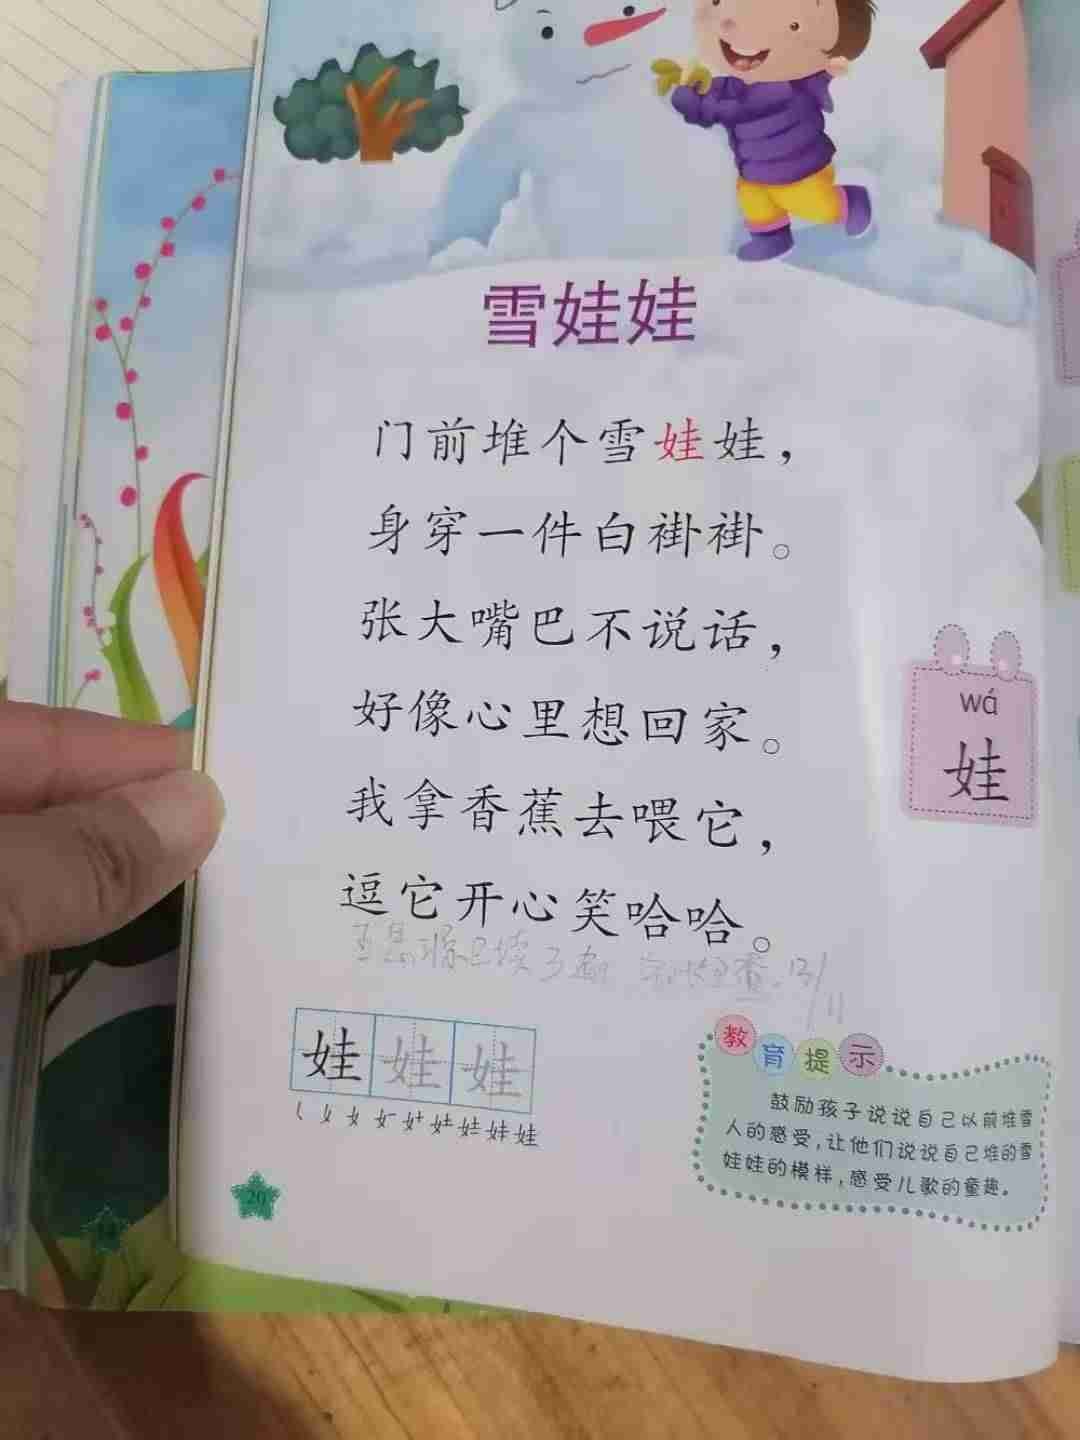 雪娃娃
门前堆个雪娃娃，
身穿一件白褂褂。
张大嘴巴不说话，
好像心里想回家。
我拿香蕉去喂它，
逗它开心笑哈哈。
wá
娃
娃 娃 娃
教育提示
鼓励孩子说说自己以前堆雪
人的感受，让他们说说自己堆的雪
娃娃的模样，感受儿歌的童趣。
20